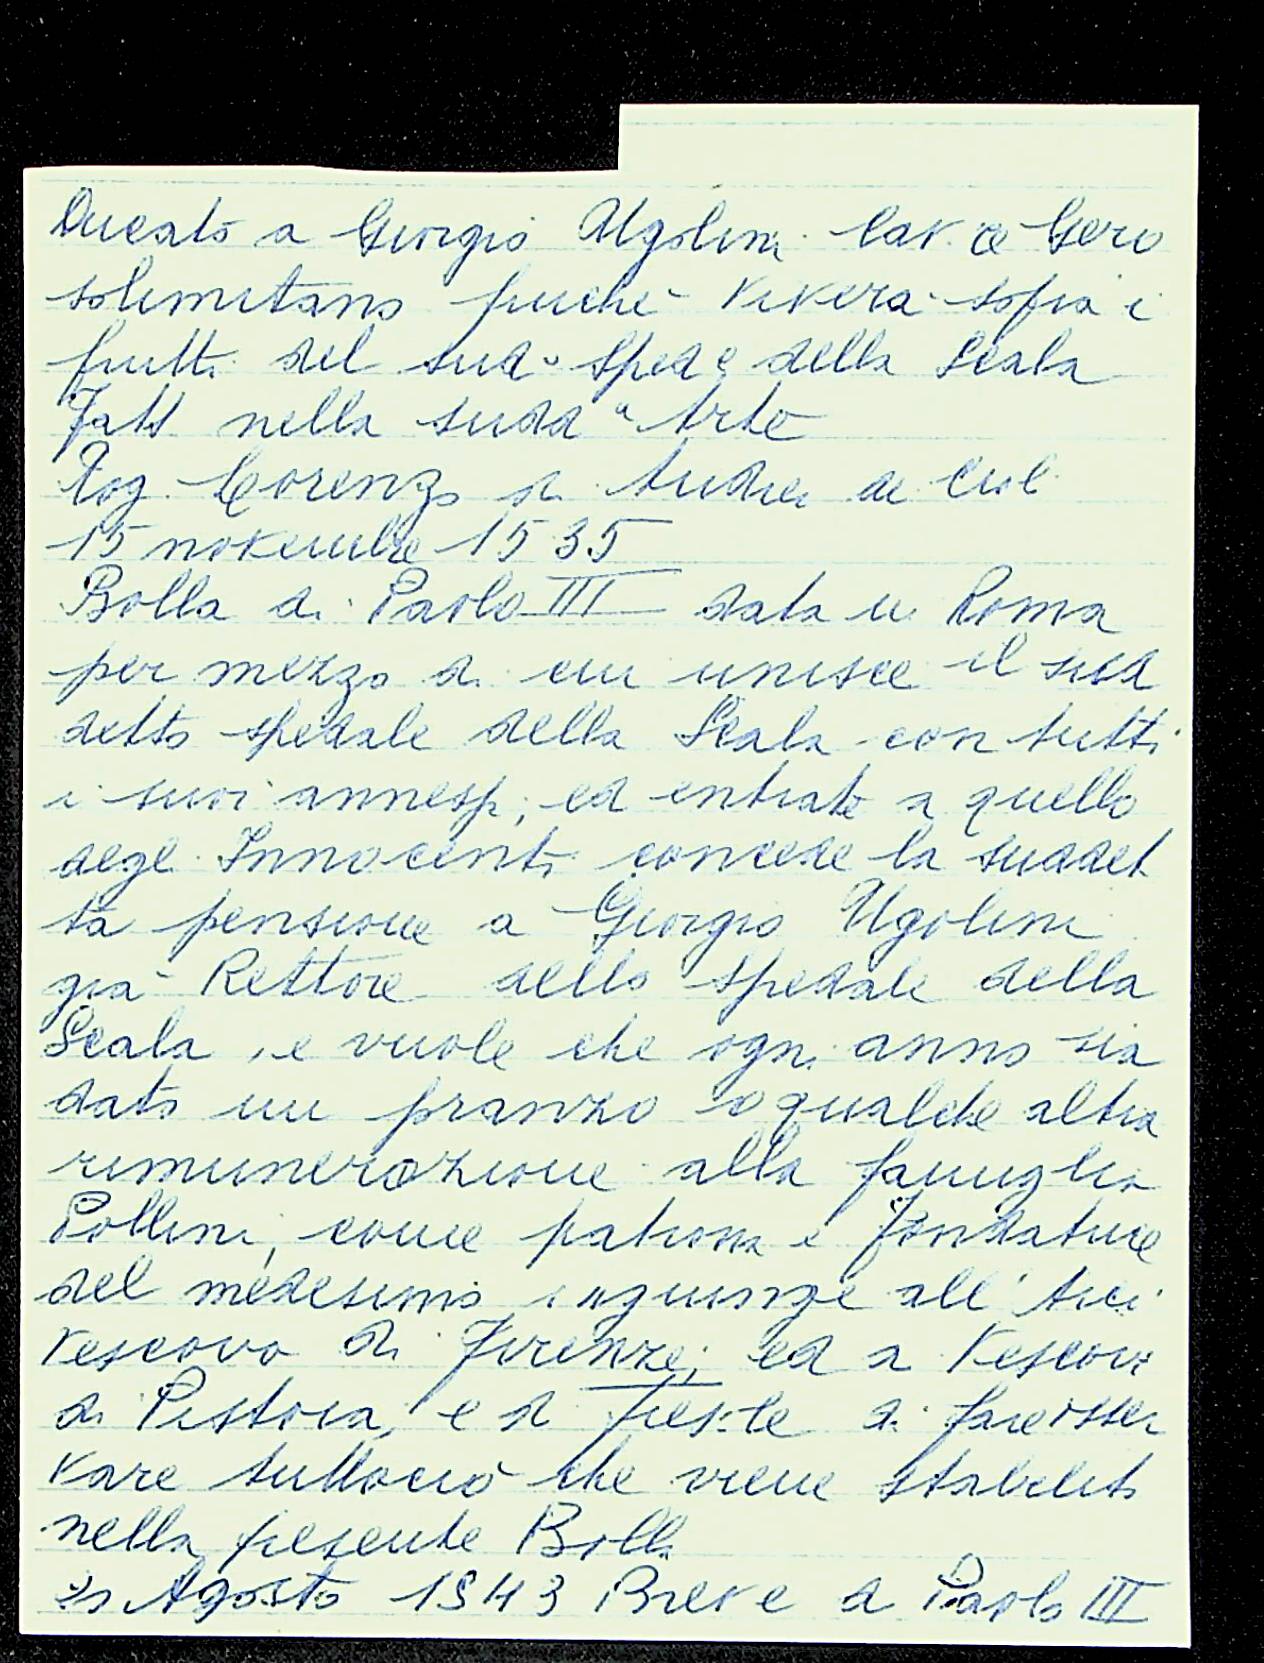 Ducato a Giorgio Ugolini Cav e Gero
solimitano finchè viverà sopra i
frutti del sudº Spedº della Scala
Fatt nella sudd ª Arte
Rog. Lorenzo di Andrea di
15 novembre 1535
Bolla di Paolo III data in Roma
per mezzo di cui unisce il sud
detto spedale della Scala con tutti
i suoi annessi, ed entrate a quello
degl Innocenti concede la suddet
ta pensione a Giorgio Ugolini
già Rettore dello spedale della
Scala, e vuole che ogni anno sia
dato un pranzo o qualche altra
rimunerazione alla famiglia
Pollini, come patrona e fondatrice
del medesimo ingiunge all'Arci
vescovo di Firenze, ed a Vescovi
di Pistoia, e di Fiesole di fare osser
vare tuttociò che viene stabilito
nella presente Bolla
Agosto 1543 Breve di Paolo III